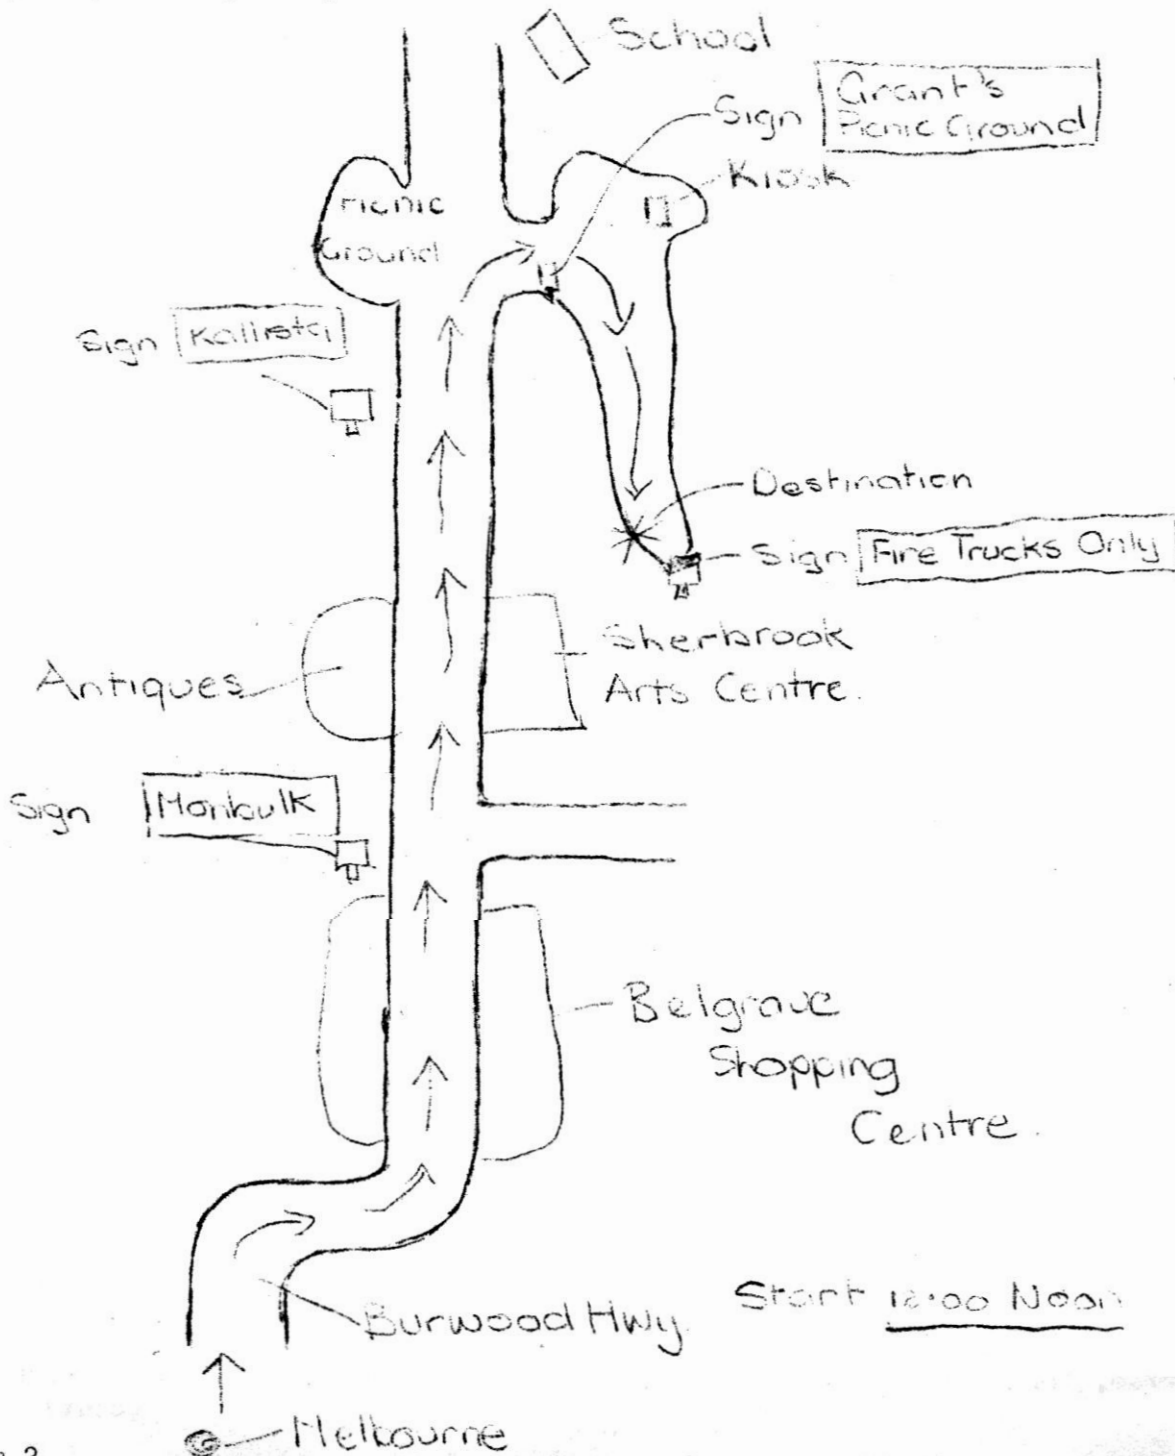 School
Sign Grant's
Picnic Ground
Kiosk
Picnic
Ground
Sign Kallista
Destination
Sign Fire Trucks Only
Sherbrook
Arts Centre.
Antiques
Sign Monbulk
Belgrave
Shopping
Centre.
Burwood Hwy
Start 12.00 Noon
Melbourne